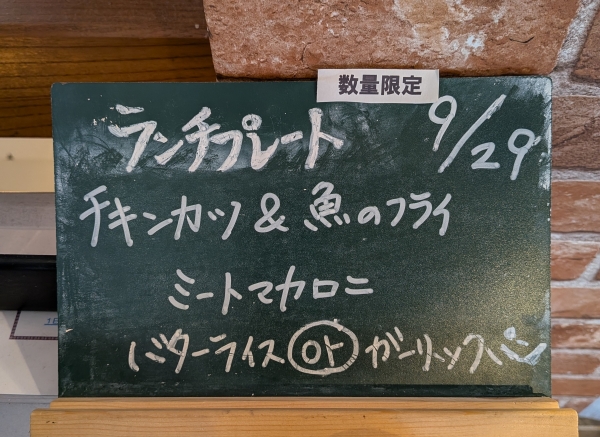 数量限定
ランチプレート 9/29
チキンカツ & 魚のフライ
ミートマカロニ
バターライス or ガーリックパン